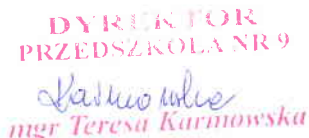 DYREKTOR
PRZEDSZKOLA NR 9
mgr Teresa Karmowska